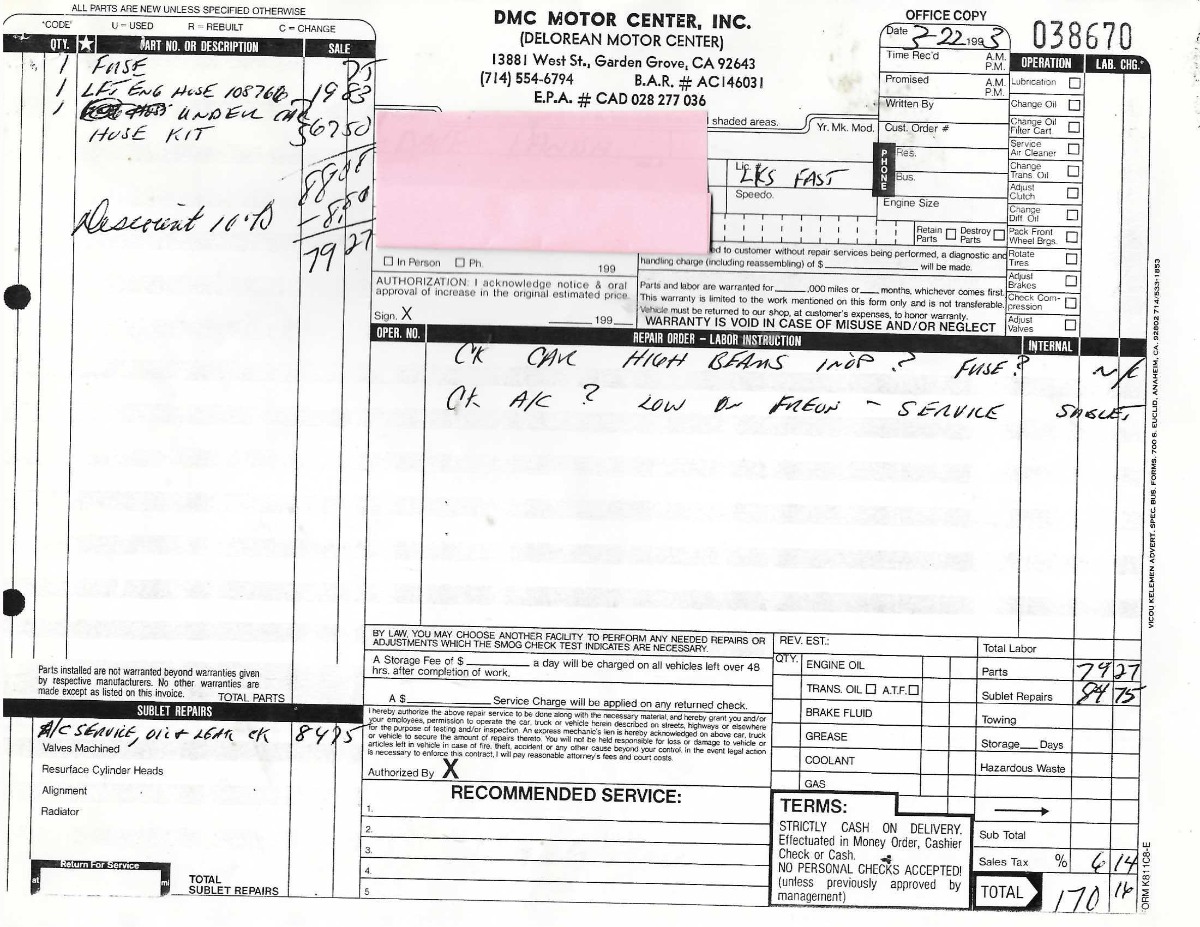 ALL PARTS ARE NEW UNLESS SPECIFIED OTHERWISE
"CODE" U = USED R = REBUILT C = CHANGE
QTY. ★ PART NO. OR DESCRIPTION SALE
1 FUSE 75
1 LFT ENG HOSE 108768 19 83
1 UNDER CAR 67 50
HOSE KIT
88 08
Discount 10% - 8.80
79 27
DMC MOTOR CENTER, INC.
(DELOREAN MOTOR CENTER)
13881 West St., Garden Grove, CA 92643
(714) 554-6794 B.A.R. # AC146031
E.P.A. # CAD 028 277 036
shaded areas.
Yr. Mk. Mod.
Lic. #
LKS FAST
Speedo.
OFFICE COPY
038670
Date 3-22 1993
Time Rec'd A.M. P.M.
Promised A.M. P.M.
Written By
Cust. Order #
PHONE
Res.
Bus.
Engine Size
Retain Parts Destroy Parts
OPERATION LAB. CHG.*
Lubrication
Change Oil
Change Oil Filter Cart
Service Air Cleaner
Change Trans. Oil
Adjust Clutch
Change Diff. Oil
Pack Front Wheel Brgs.
Rotate Tires
Adjust Brakes
Check Compression
Adjust Valves
ed to customer without repair services being performed, a diagnostic and
handling charge (including reassembling) of $ ________ will be made.
In Person Ph. 199
AUTHORIZATION: I acknowledge notice & oral
approval of increase in the original estimated price.
Sign. X ________ 199___
Parts and labor are warranted for ______,000 miles or ____ months, whichever comes first.
This warranty is limited to the work mentioned on this form only and is not transferable.
Vehicle must be returned to our shop, at customer's expenses, to honor warranty.
WARRANTY IS VOID IN CASE OF MISUSE AND/OR NEGLECT
OPER. NO. REPAIR ORDER – LABOR INSTRUCTION INTERNAL
CK CAR HIGH BEAMS INOP ? FUSE? N/C
CK A/C ? LOW ON FREON - SERVICE SUBLET
VICOU KELEMEN ADVERT. SPEC. BUS. FORMS. 700 S. EUCLID, ANAHEIM, CA. 92802 714/533-1853
Parts installed are not warranted beyond warranties given
by respective manufacturers. No other warranties are
made except as listed on this invoice. TOTAL PARTS
SUBLET REPAIRS
A/C SERVICE, OIL + LEAK CK 84 75
Valves Machined
Resurface Cylinder Heads
Alignment
Radiator
Return For Service
at ml
TOTAL
SUBLET REPAIRS
BY LAW, YOU MAY CHOOSE ANOTHER FACILITY TO PERFORM ANY NEEDED REPAIRS OR
ADJUSTMENTS WHICH THE SMOG CHECK TEST INDICATES ARE NECESSARY.
A Storage Fee of $ ________ a day will be charged on all vehicles left over 48
hrs. after completion of work.
A $ ________ Service Charge will be applied on any returned check.
I hereby authorize the above repair service to be done along with the necessary material, and hereby grant you and/or
your employees, permission to operate the car, truck or vehicle herein described on streets, highways or elsewhere
for the purpose of testing and/or inspection. An express mechanic's lien is hereby acknowledged on above car, truck
or vehicle to secure the amount of repairs thereto. You will not be held responsible for loss or damage to vehicle or
articles left in vehicle in case of fire, theft, accident or any other cause beyond your control, in the event legal action
is necessary to enforce this contract, I will pay reasonable attorney's fees and court costs.
Authorized By X
RECOMMENDED SERVICE:
1.
2.
3.
4.
5
REV. EST.:
QTY.
ENGINE OIL
TRANS. OIL A.T.F.
BRAKE FLUID
GREASE
COOLANT
GAS
TERMS:
STRICTLY CASH ON DELIVERY.
Effectuated in Money Order, Cashier
Check or Cash.
NO PERSONAL CHECKS ACCEPTED!
(unless previously approved by
management)
Total Labor
Parts 79 27
Sublet Repairs 84 75
Towing
Storage___Days
Hazardous Waste
Sub Total
Sales Tax % 6 14
TOTAL 170 16
ORM K811C8-E